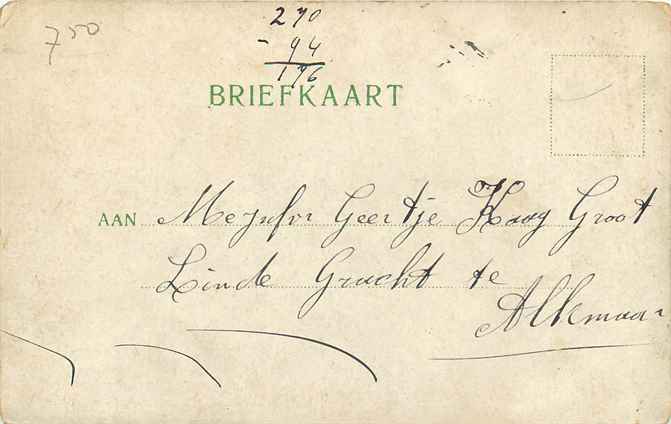 750
270
- 94
176
BRIEFKAART
AAN Mejufvr Geertje Haag Groot
Linde Gracht te
Alkmaar